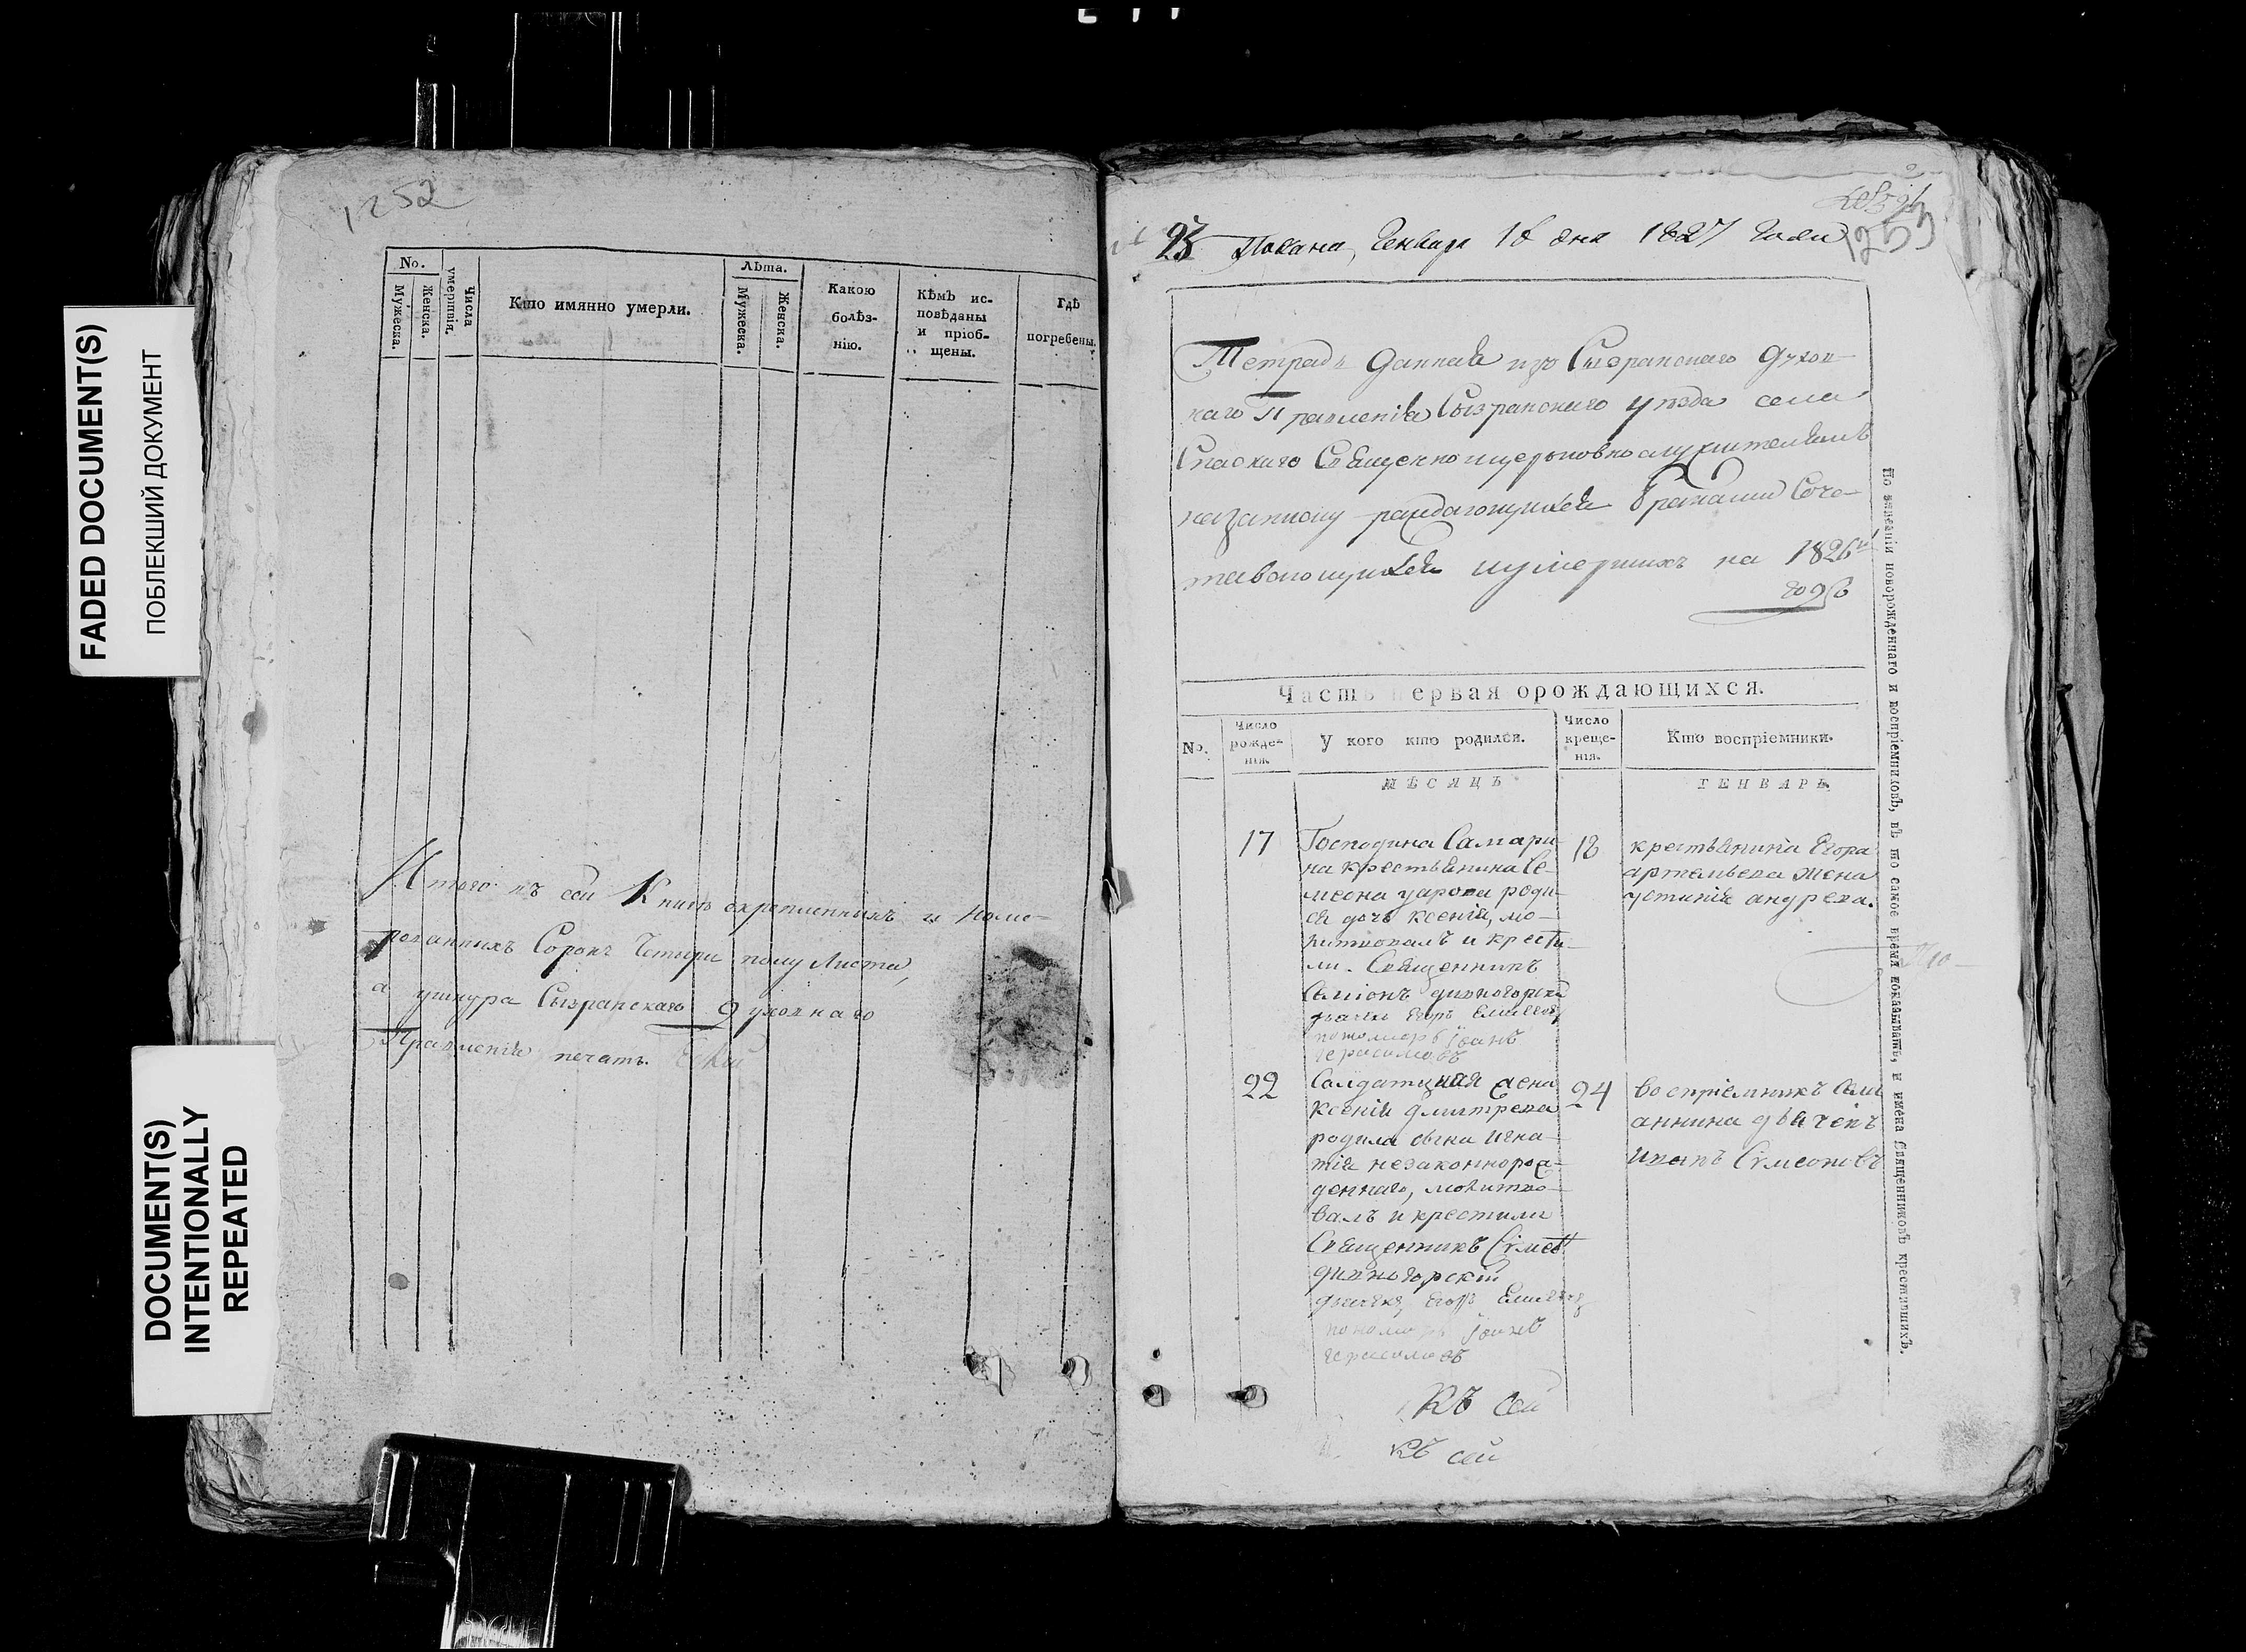 FADED DOCUMENT(S)
ПОБЛЕКШИЙ ДОКУМЕНТ
DOCUMENT(S)
INTENTIONALLY
REPEATED
1252
No.
Мужеска.
Женска.
Числа
умершія.
Кто имянно умерли.
Лѣта.
Мужеска.
Женска.
Какою
болѣз-
нію.
Кѣмъ ис-
повѣданы
и пріоб-
щены.
Гдѣ
погребены.
Итого въ сей Книгѣ скрепленныхъ и номе-
рованныхъ Сорокъ Четыри полу Листа,
а ушнура Сызранскаго Духовнаго
Правленія печать.
Подана, Генваря 18 дня 1827 Года
1253
Тетрадь Данная изъ Сызранскаго Духов-
наго Правленія Сызранскаго уѣзда села
Спаскаго Священноицерьковнослужителямъ
раждающихся браками Соче-
тавающихся иумершихъ на 1826й
годъ
Часть первая орождающихся.
No.
Число
рожде-
нія.
У кого кто родился.
Число
креще-
нія.
Кто воспріемники.
МѢСЯЦЪ
ГЕНВАРЬ.
17
Господина Самари-
на крестьянина Се-
меона уарова роди-
ся дочь ксенія, мо-
литвовалъ и крести-
ли. Священникъ
Симіонъ дивногорскій
дьячекъ Егоръ
пономарь Іоанъ
герасимовъ
18
крестьянина Егора
артемьева жена
устинія андреева.
22
Салдатцкая жена
Ксенія дмитрева
родила сына Игна-
тія незаконнорож-
деннаго, молитво-
валъ и крестили
Священникъ Сімео
дивногорскій
дьячекъ Егоръ
пономарь Іоанъ
герасимовъ
24
воспріемникъ Сели
аннина дьячекъ
Иванъ Сімеоновъ
Къ сей
къ сей
По имѣніи новорожденнаго и воспріемниковъ, въ то самое время показывать, и имена Священниковъ крестившихъ.